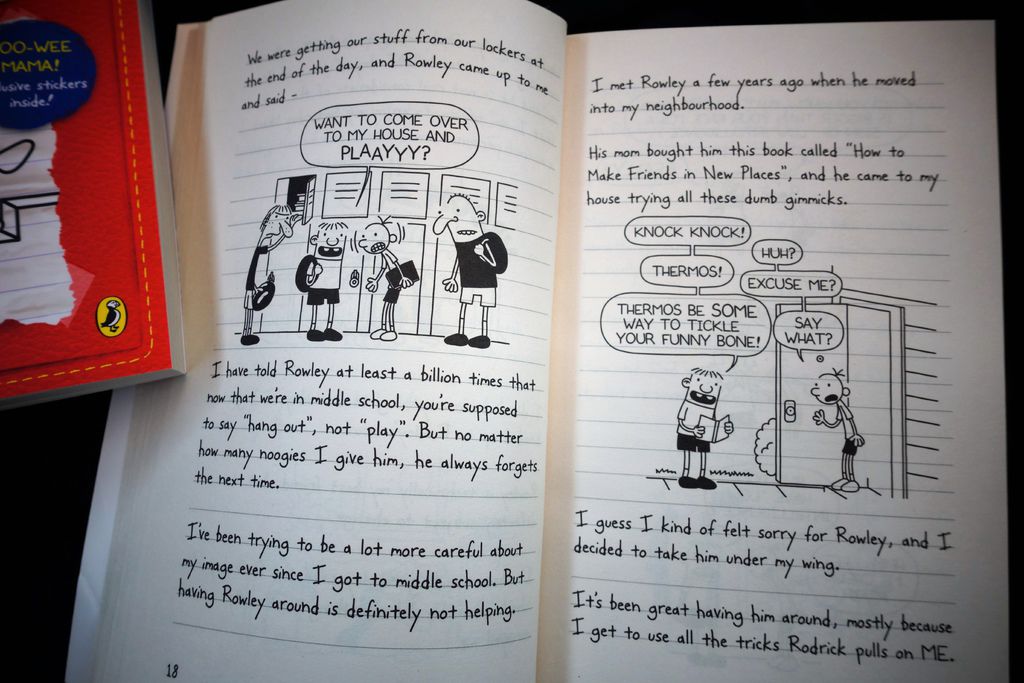 OO-WEE
MAMA!
lusive stickers
inside!
We were getting our stuff from our lockers at
the end of the day, and Rowley came up to me
and said -
WANT TO COME OVER
TO MY HOUSE AND
PLAAYYY?
I have told Rowley at least a billion times that
now that we're in middle school, you're supposed
to say "hang out", not "play". But no matter
how many noogies I give him, he always forgets
the next time.
I've been trying to be a lot more careful about
my image ever since I got to middle school. But
having Rowley around is definitely not helping.
18
I met Rowley a few years ago when he moved
into my neighbourhood.
His mom bought him this book called "How to
Make Friends in New Places", and he came to my
house trying all these dumb gimmicks.
KNOCK KNOCK!
HUH?
THERMOS!
EXCUSE ME?
THERMOS BE SOME
WAY TO TICKLE
YOUR FUNNY BONE!
SAY
WHAT?
I guess I kind of felt sorry for Rowley, and I
decided to take him under my wing.
It's been great having him around, mostly because
I get to use all the tricks Rodrick pulls on ME.